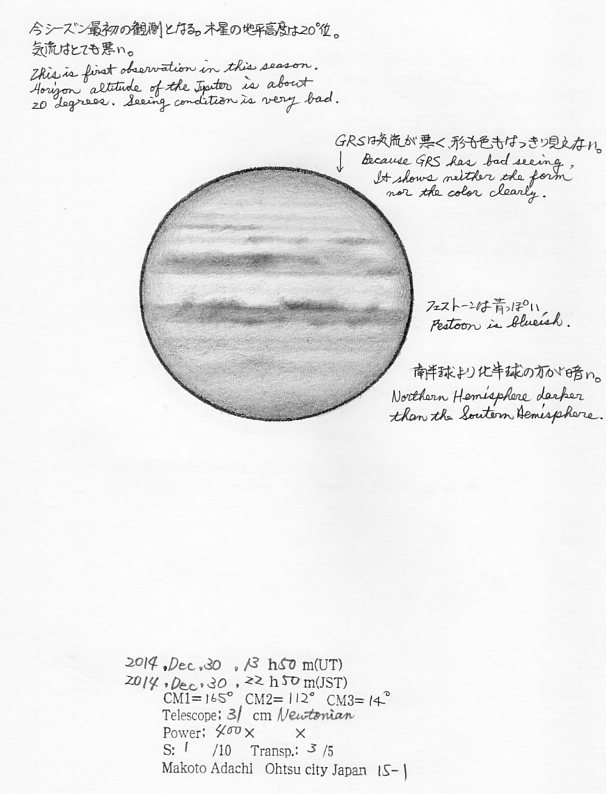 今シーズン最初の観測となる。木星の地平高度は20°位。
気流はとても悪い。
This is first observation in this season.
Horizon altitude of the Jpiter is about
20 degrees. Seeing condition is very bad.
GRSは気流が悪く、形も色もはっきり見えない。
Because GRS has bad seeing,
It shows neither the form
nor the color clearly.
フェストーンは青っぽい
Festoon is blueish.
南半球より北半球の方が暗い。
Northern Hemisphere darker
than the Soutern Hemisphere.
2014, Dec, 30, 13 h 50 m(UT)
2014, Dec, 30, 22 h 50 m(JST)
CM1=165° CM2=112° CM3=14°
Telescope; 31 cm Newtonian
Power; 400× ×
S: 1 /10 Transp.; 3 /5
Makoto Adachi Ohtsu city Japan 15-1